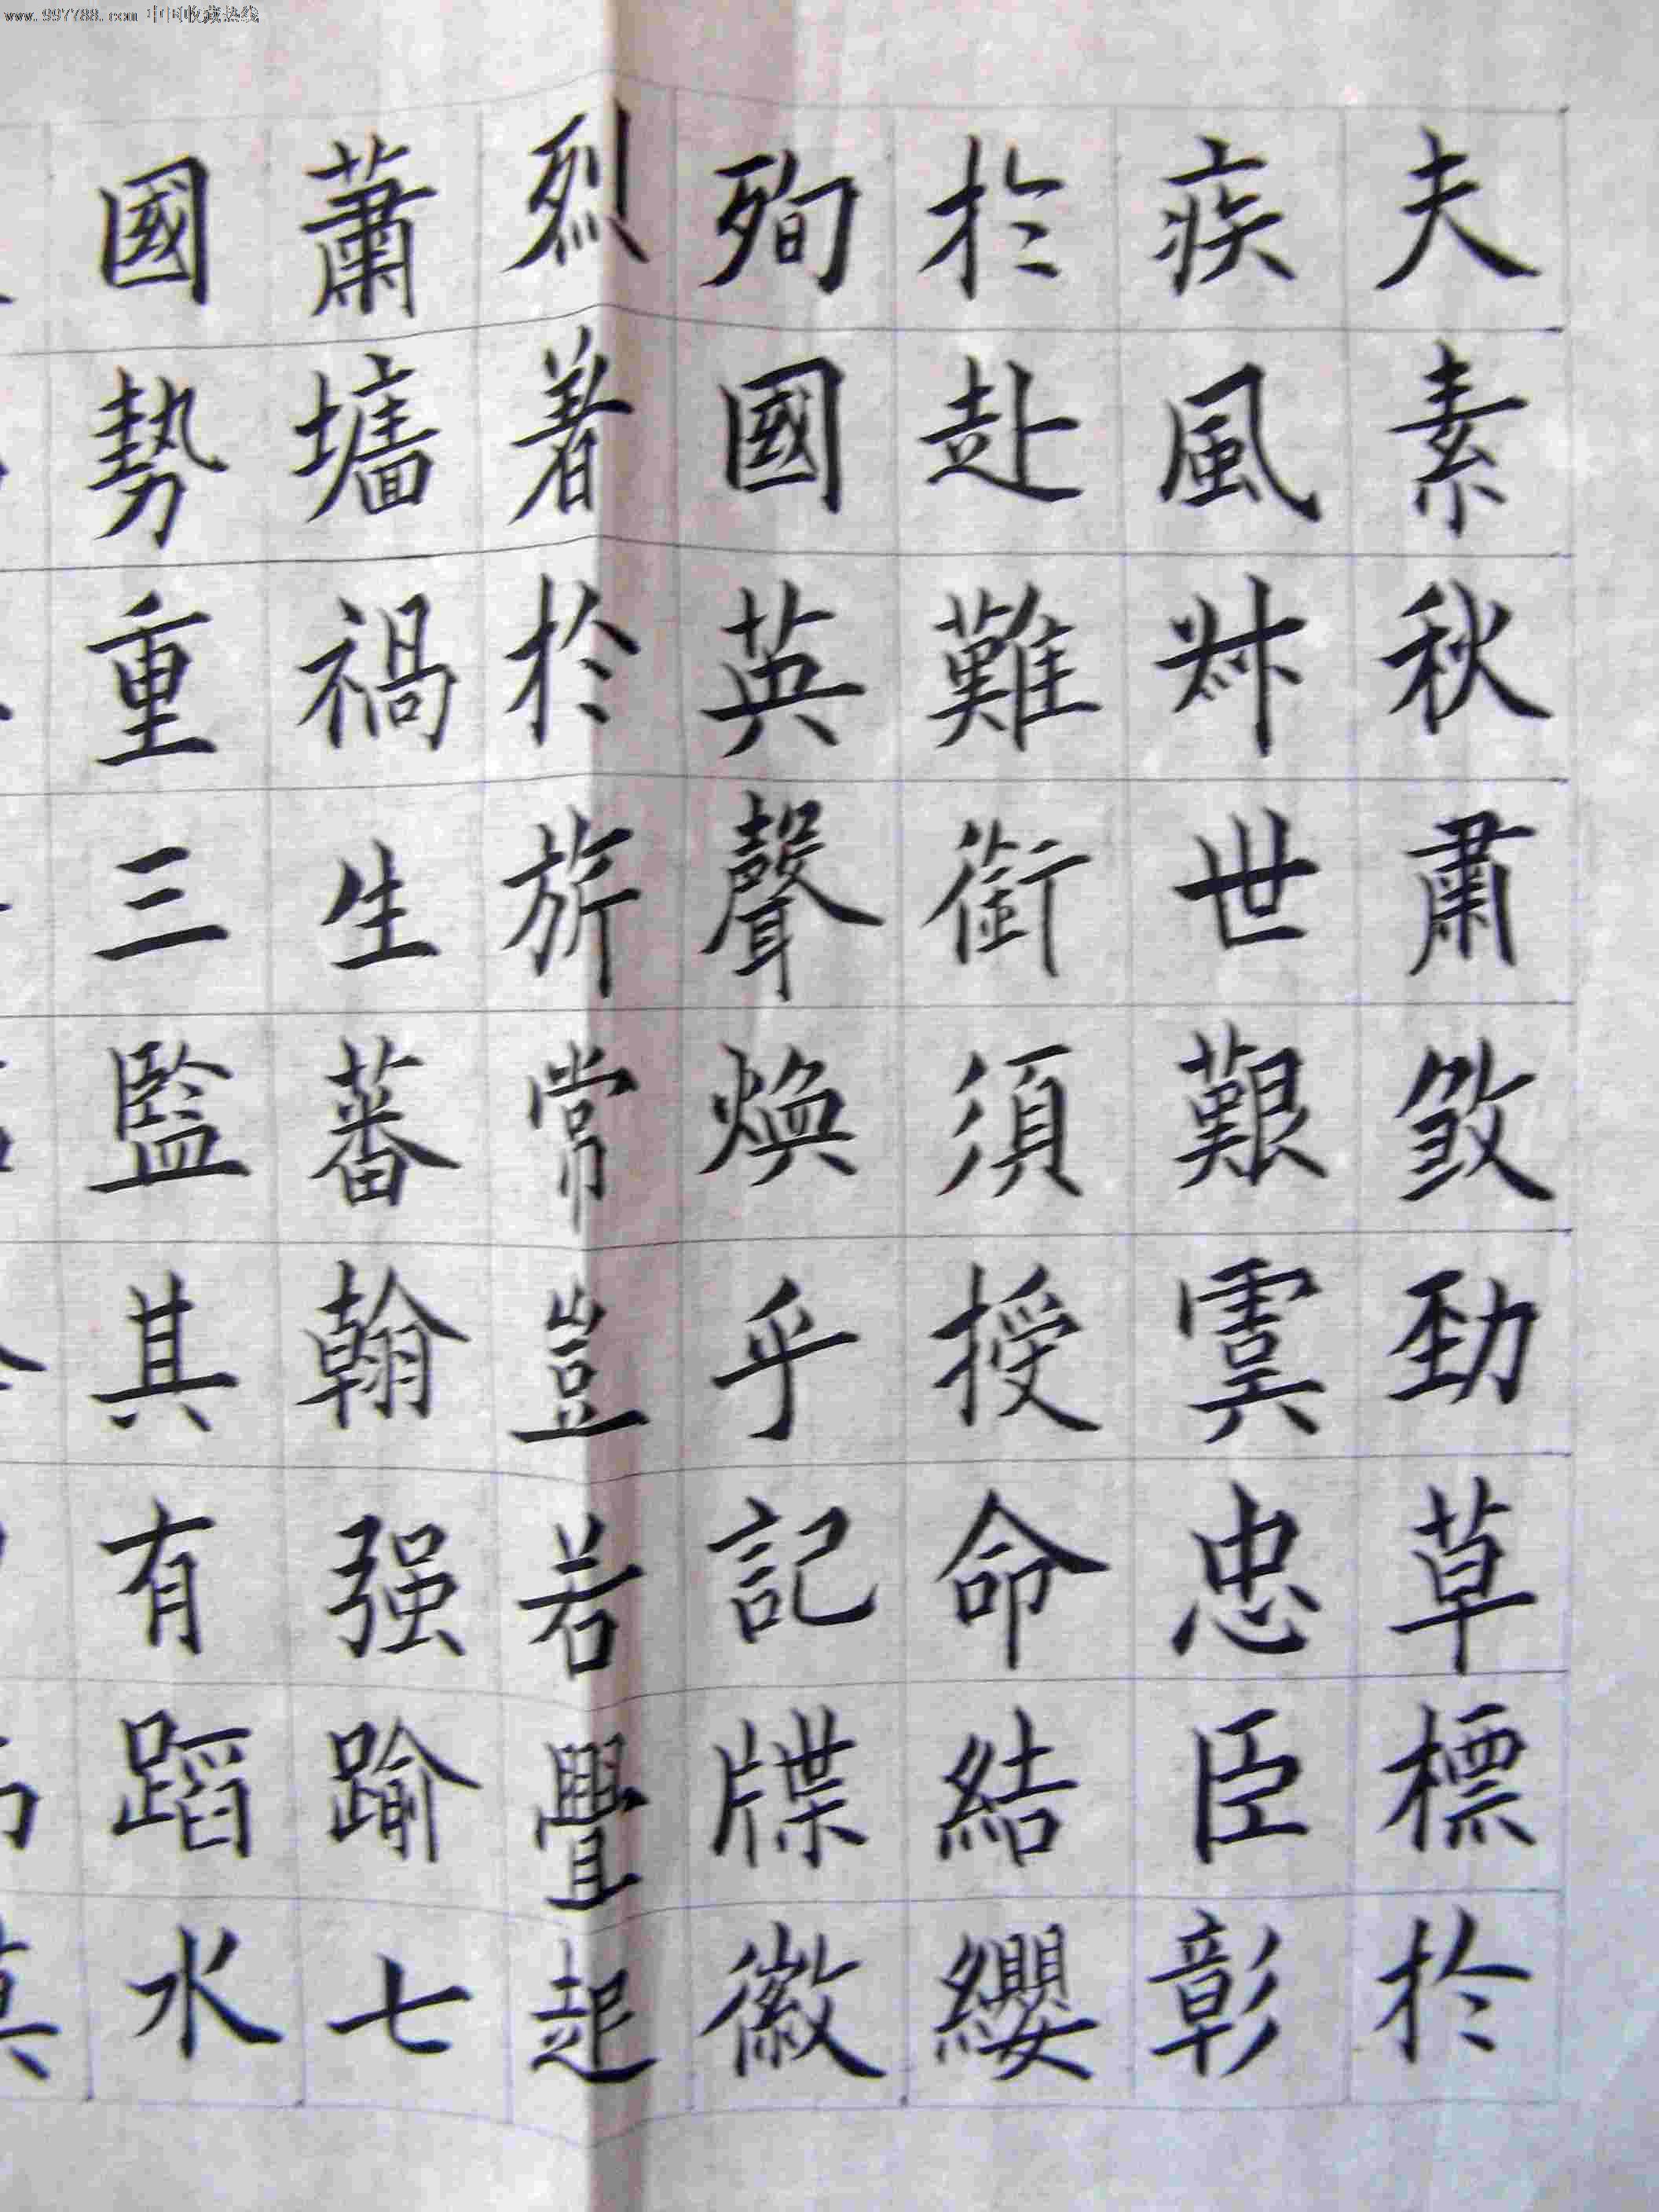 www.997788.com 中国收藏热线
夫素秋肅煞勁草標於
疾風叔世艱虞忠臣彰
於赴難銜須授命結纓
殉國英聲煥乎記牒徽
烈著於旂常豈若舋起
蕭墻禍生蕃翰强踰七
國勢重三監其有蹈水